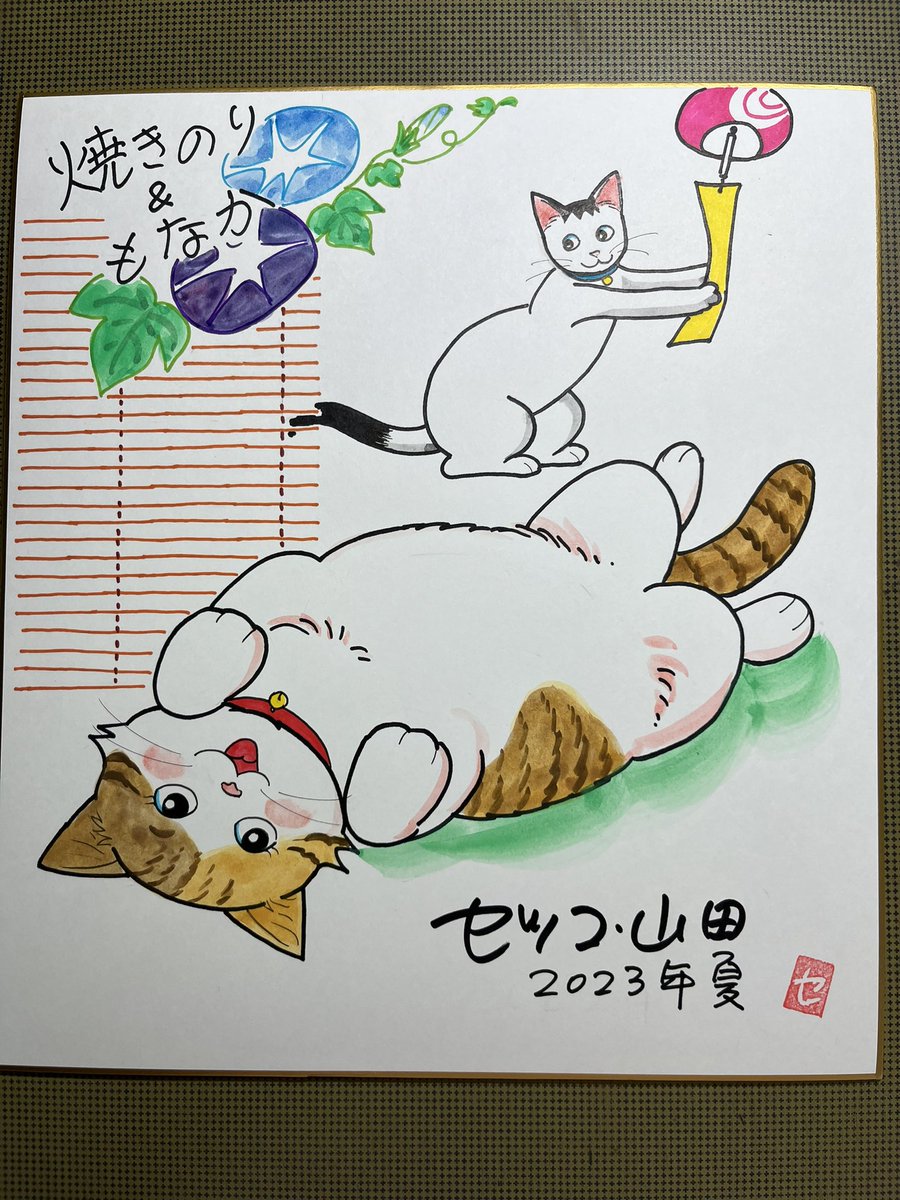 焼きのり
&
もなか
セツコ・山田
2023年夏
セ